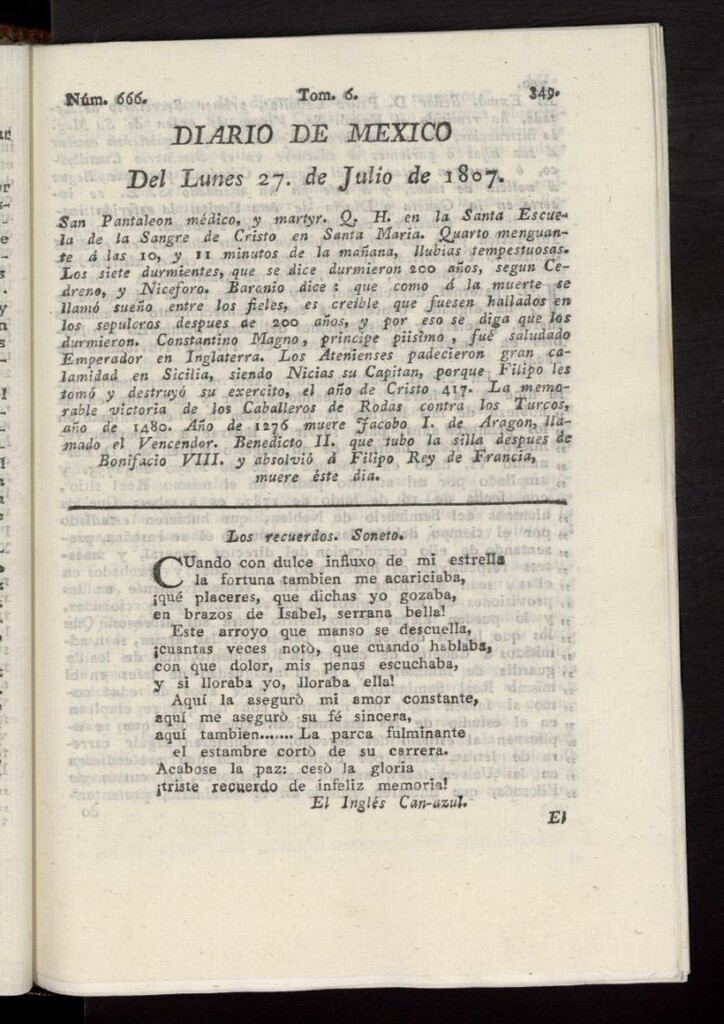 Núm. 666. Tom. 6. 349.
DIARIO DE MEXICO
Del Lunes 27. de Julio de 1807.
San Pantaleon médico, y martyr. Q. H. en la Santa Escue-
la de la Sangre de Cristo en Santa Maria. Quarto menguan-
te á las 10, y 11 minutos de la mañana, llubias tempestuosas.
Los siete durmientes, que se dice durmieron 200 años, segun Ce-
dreno, y Niceforo. Baronio dice: que como á la muerte se
llamó sueño entre los fieles, es creible que fuesen hallados en
los sepulcros despues de 200 años, y por eso se diga que los
durmieron. Constantino Magno, príncipe piisimo, fué saludado
Emperador en Inglaterra. Los Atenienses padecieron gran ca-
lamidad en Sicilia, siendo Nicias su Capitan, porque Filipo les
tomó y destruyó su exercito, el año de Cristo 417. La memo-
rable victoria de los Caballeros de Rodas contra los Turcos,
año de 1480. Año de 1276 muere Jacobo I. de Aragon, lla-
mado el Vencedor. Benedicto II. que tubo la silla despues de
Bonifacio VIII. y absolvió á Filipo Rey de Francia,
muere éste dia.
Los recuerdos. Soneto.
CUando con dulce influxo de mi estrella
la fortuna tambien me acariciaba,
¡qué placeres, que dichas yo gozaba,
en brazos de Isabel, serrana bella!
Este arroyo que manso se descuella,
¡cuantas veces notò, que cuando hablaba,
con que dolor, mis penas escuchaba,
y si lloraba yo, lloraba ella!
Aquí la aseguró mi amor constante,
aquí me asegurò su fé sincera,
aquí tambien....... La parca fulminante
el estambre cortò de su carrera.
Acabose la paz: cesò la gloria
¡triste recuerdo de infeliz memoria!
El Inglés Can-azul.
El